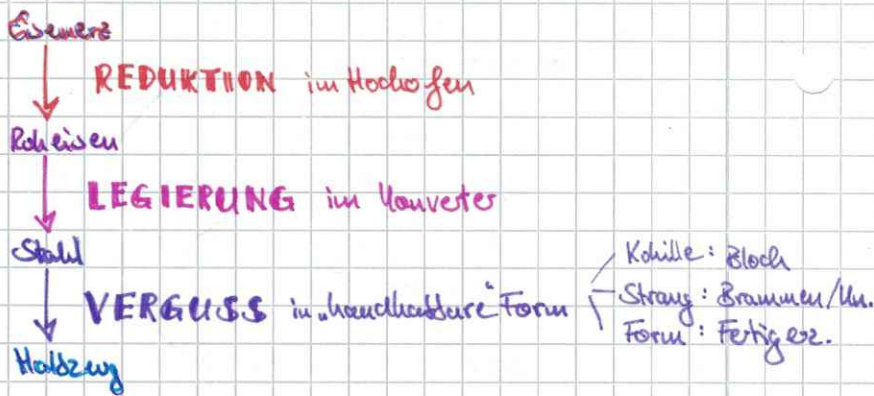 Eisenerz
REDUKTION im Hochofen
Roheisen
LEGIERUNG im Konverter
Stahl
VERGUSS in „handhabbare" Form
Kokille: Block
Strang: Brammen/Kn.
Form: Fertigerz.
Halbzeug